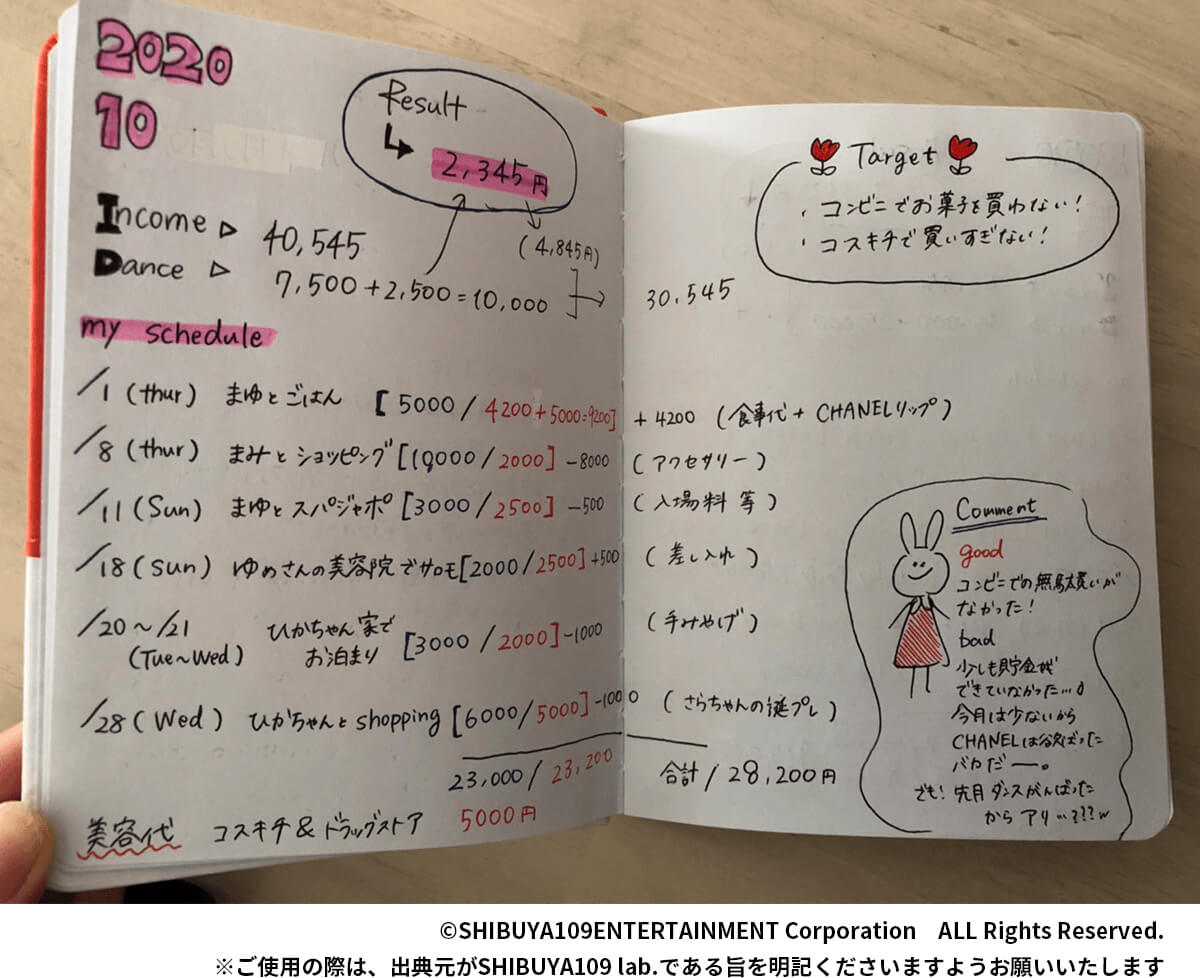 2020
10
Result
↳ 2,345円
(4,845円)
Income ▷ 40,545
Dance ▷ 7,500+2,500=10,000 → 30,545
my schedule
/1 (thur) まゆとごはん [5000 / 4200+5000=9200] +4200 (食事代 + CHANELリップ)
/8 (thur) まみとショッピング [10000 / 2000] -8000 (アクセサリー)
/11 (Sun) まゆとスパジャポ [3000 / 2500] -500 (入場料 等)
/18 (sun) ゆめさんの美容院でサロモ [2000 / 2500] +500 (差し入れ)
/20〜/21 ひかちゃん家で
(Tue〜Wed) お泊まり [3000 / 2000] -1000 (手みやげ)
/28 (Wed) ひかちゃんとshopping [6000 / 5000] -1000 (さらちゃんの誕プレ)
23,000 / 23,200 合計 / 28,200円
美容代 コスキチ & ドラッグストア 5000円
Target
・コンビニでお菓子を買わない!
・コスキチで買いすぎない!
Comment
good
コンビニでの無駄買いが
なかった!
bad
少しも貯金が
できていなかった…。
今月は少ないから
CHANELは欲ばった
バカだー。
でも! 先月ダンスがんばった
から アリ…???w
©SHIBUYA109ENTERTAINMENT Corporation ALL Rights Reserved.
※ご使用の際は、出典元がSHIBUYA109 lab.である旨を明記くださいますようお願いいたします